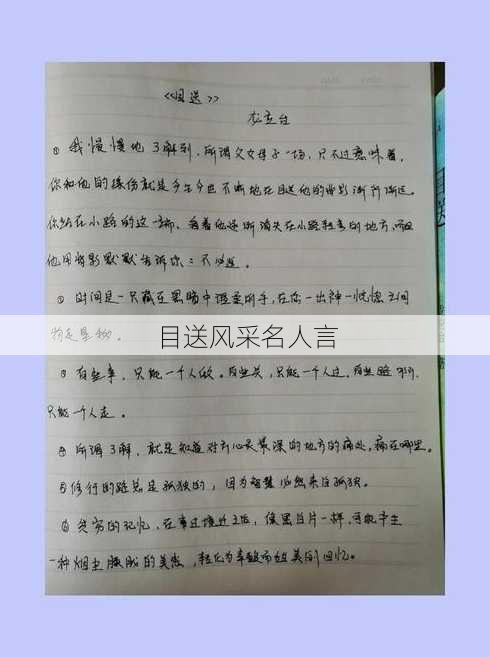 《目送》
龙应台
① 我慢慢地了解到，所谓父女母子一场，只不过意味着，
你和他的缘份就是今生今世不断地在目送他的背影渐行渐远。
你站在小路的这一端，看着他逐渐消失在小路转弯的地方，而且
他用背影默默告诉你：不必追。
② 时间是一只藏在黑暗中温柔的手，在你一出神一恍惚之间
物走星移。
目送风采名人言
③ 有些事，只能一个人做。有些关，只能一个人过。有些路啊，
只能一个人走。
④ 所谓了解，就是知道对方心灵最深的地方的痛处，痛在哪里。
⑤ 修行的路总是孤独的，因为智慧必然来自孤独。
⑥ 贫穷的记忆，在事过境迁之后，像黑白片一样，可能产生
一种烟尘朦胧的美感，转化为辛酸而甜美的回忆。
目送